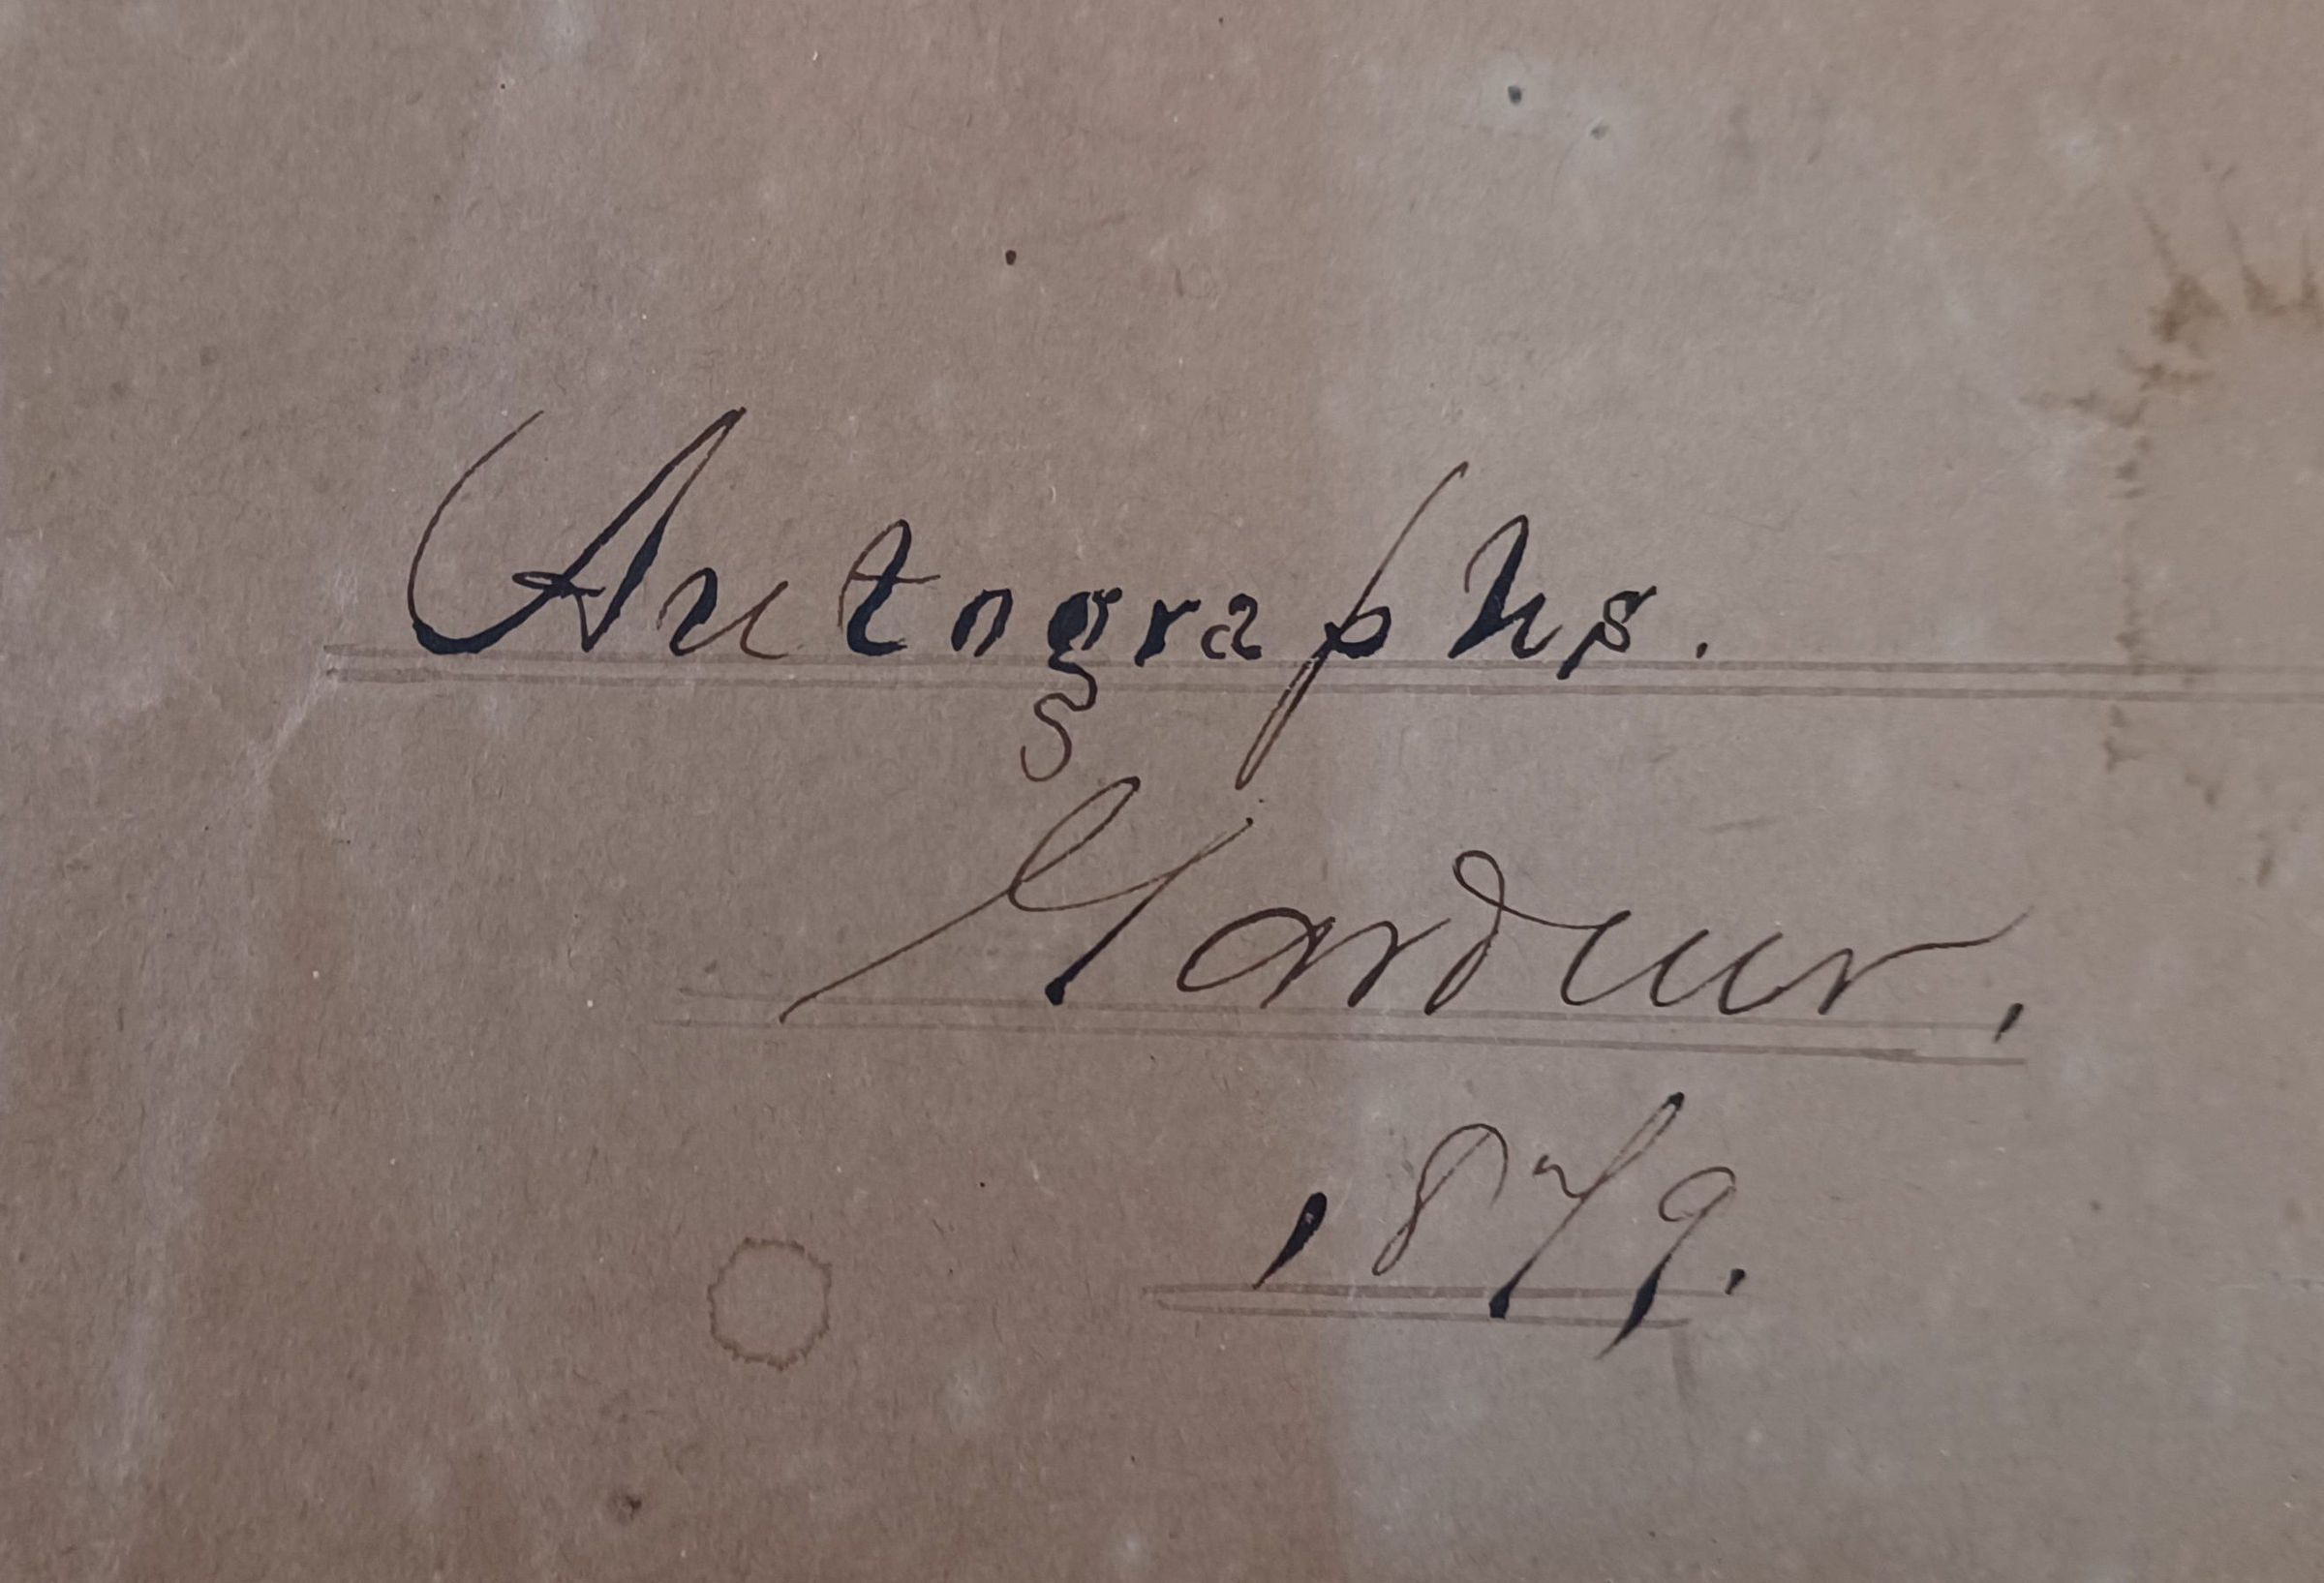 Autographs.
Gardiur.
1879.